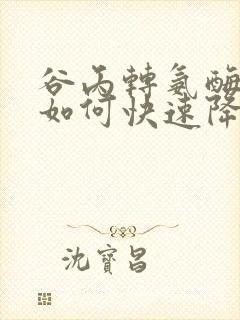 谷丙轉氨酶
如何快速降
沈寶昌